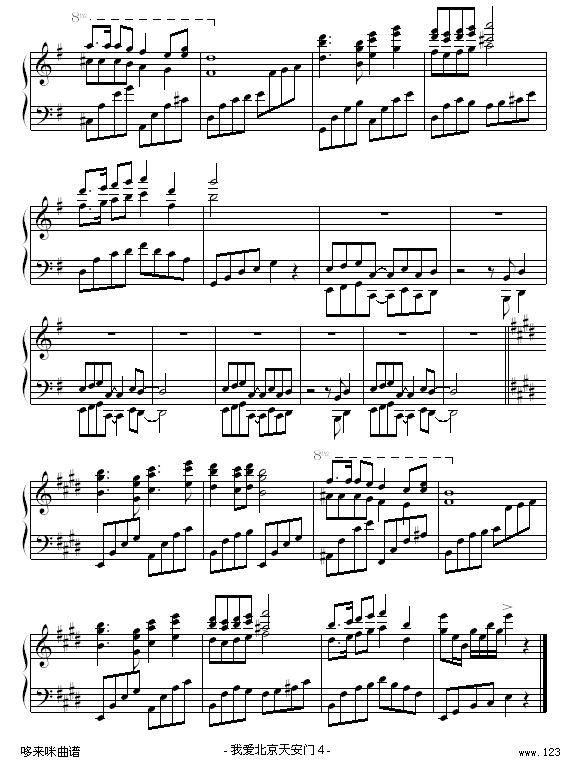 8va
8va
哆来咪曲谱
- 我爱北京天安门 4 -
www.123